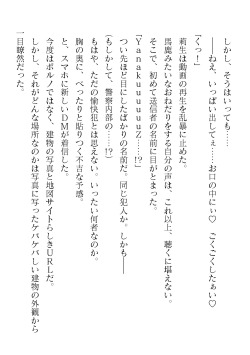 しかし、そうはいっても……
――ねえ、いっぱい出してぇ……お口の中にぃ♡　ごくごくしたぁい♡
「くっ！」
莉生は動画の再生を乱暴に止めた。
馬鹿みたいなおねだりをする自分の声は、これ以上、聴くに堪えない。
そこで、初めて送信者の名前に目がとまった。
『Ｙａｎａｋｕｕｕｕｕｚ……!?』
つい先ほど目にしたばかりの名前だ。同じ犯人か。しかも――
（もしかして、警察内部の……!?）
もはや、ただの愉快犯とは思えない。いったい何者なのか。
胸の奥に、べったりと貼りつく不吉な予感。
と、スマホに新しいＤＭが着信した。
今度はポルノではなく、建物の写真と地図サイトらしきＵＲＬだ。
しかし、それがどんな場所なのかは写真に写ったケバケバしい建物の外観から
一目瞭然だった。